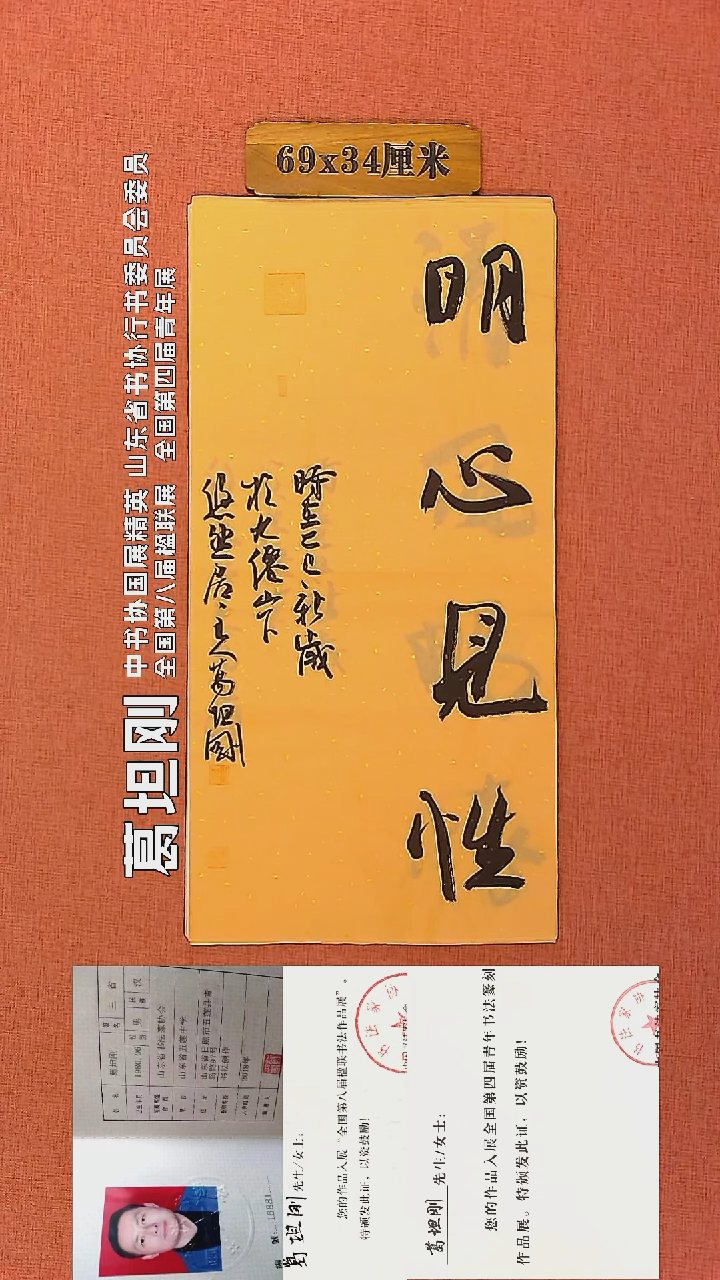 69x34厘米
明心见性
时在乙巳新岁
于九仙山下
悠然居主人葛坦刚
葛坦刚
中书协国展精英 山东省书协行书委员会委员
全国第八届楹联展 全国第四届青年展
葛坦刚
山东省书法家协会
山东省五莲中学
葛坦刚 先生/女士:
您的作品入展“全国第八届楹联书法作品展”。
特颁发此证,以资鼓励!
葛坦刚 先生/女士:
您的作品入展全国第四届青年书法篆刻
作品展。特颁发此证,以资鼓励!